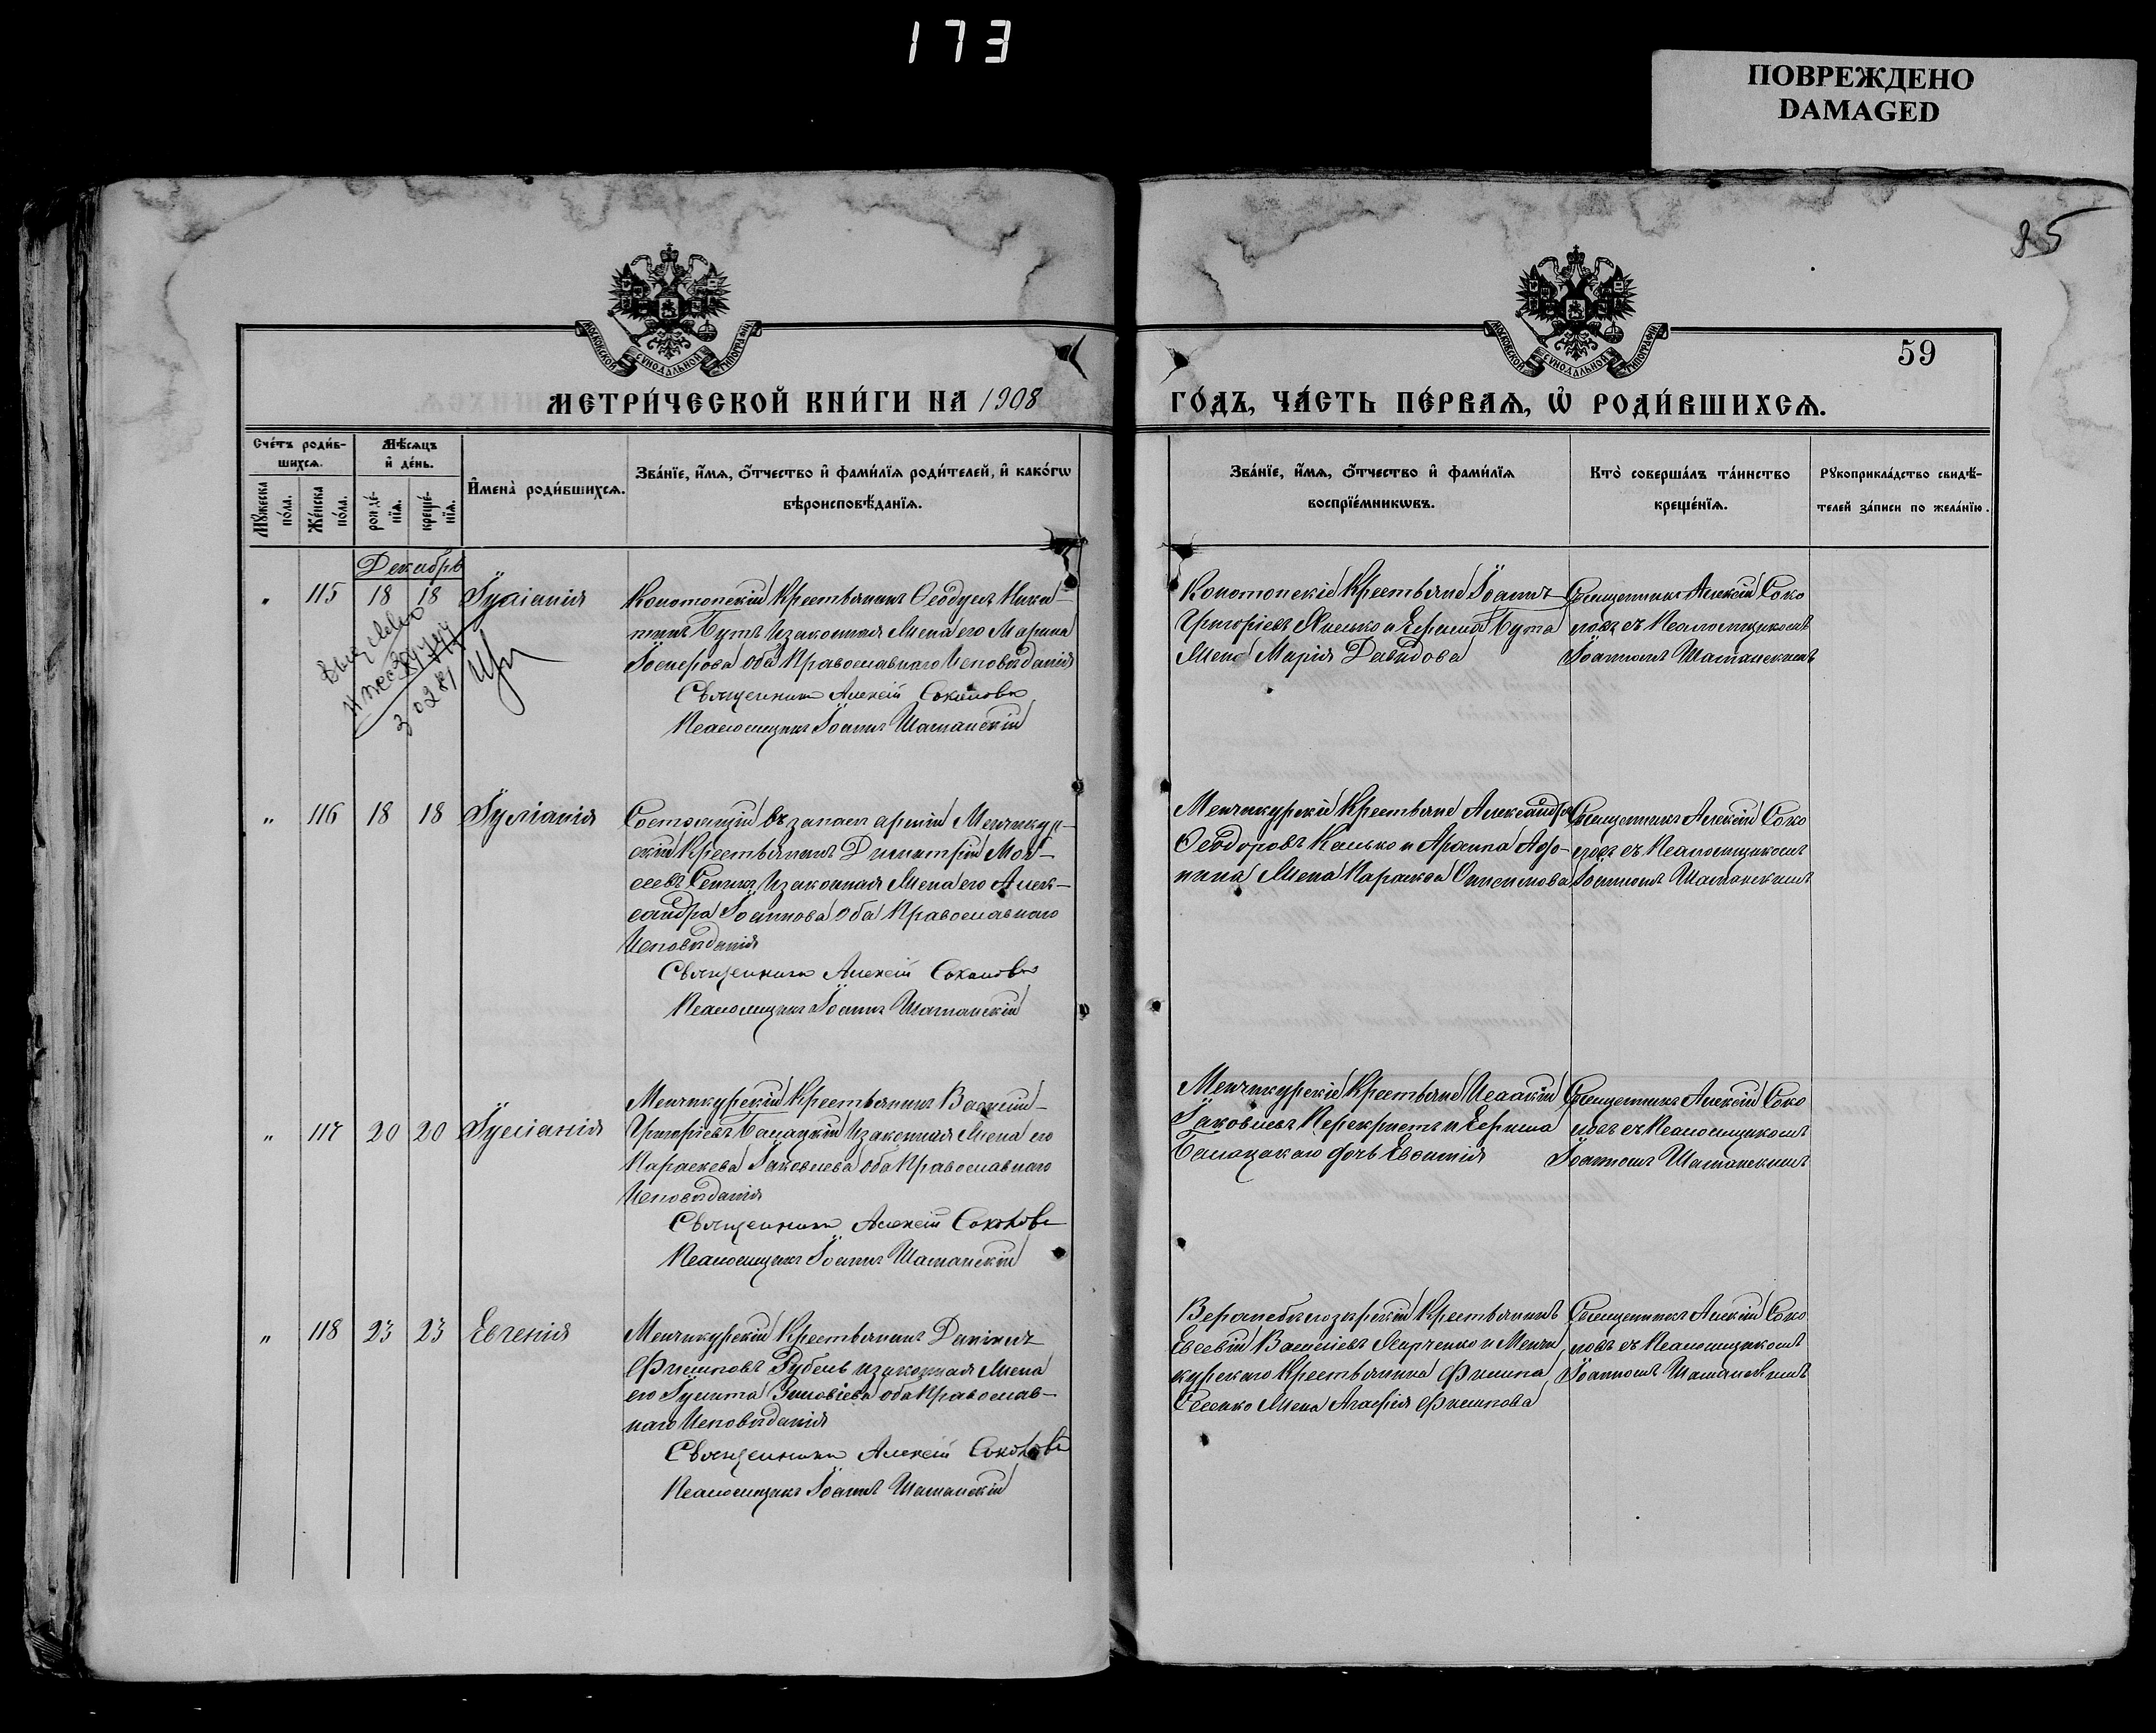 173
ПОВРЕЖДЕНО
DAMAGED
95
МОСКОВСКОЙ СѴНОДАЛЬНОЙ ТИПОГРАФІИ
МОСКОВСКОЙ СѴНОДАЛЬНОЙ ТИПОГРАФІИ
59
МЕТРИ́ЧЕСКОЙ КНИ́ГИ НА 1908
ГО́ДЪ, ЧА́СТЬ ПЕ́РВАѦ, Ѡ҆ РОДИ́ВШИХСѦ.
Сче́тъ роди́в-
шихсѧ.
Мѣ́сѧцъ
и҆ де́нь.
Мꙋ́жеска по́ла.
Же́нска по́ла.
рожде́-
нїѧ.
креще́-
нїѧ.
И҆мена̀ роди́вшихсѧ.
Зва́нїе, и҆́мѧ, ѻ҆́тчество и҆ фами́лїѧ роди́телей, и҆ како́гѡ
вѣроисповѣ́данїѧ.
Зва́нїе, и҆́мѧ, ѻ҆́тчество и҆ фами́лїѧ
воспрїе́мникѡвъ.
Кто̀ соверша́лъ та́инство
креще́нїѧ.
Рꙋкоприкла́дство свидѣ́-
телей за́писи по жела́нїю.
Декабрь
" 115 18 18 Іуліанія
Конотопскій Крестьянинъ Ѳеодулъ Ники-
тинъ Бутъ изаконная жена его Марина
Іосифова оба Православнаго Исповѣданія
Священникъ Алексій Соколовъ
Псаломщикъ Іоаннъ Шаманскій
30281
Конотопскіе Крестьяне Іоаннъ
Григоріевъ Янько и Ефима Бута
жена Марія Давидова
Священникъ Алексій Соко
ловъ съ Псаломщикомъ
Іоанномъ Шаманскимъ
" 116 18 18 Іуліанія
Состоящій въ запасѣ арміи Менчикур-
скій Крестьянинъ Димитрій Мои-
сеевъ изаконная жена его Алек-
сандра Іоаннова оба Православнаго
Исповѣданія
Священникъ Алексій Соколовъ
Псаломщикъ Іоаннъ Шаманскій
Менчикурскіе Крестьяне Александръ
Ѳеодоровъ Канько и Афо-
нина жена Онисимова
Священникъ Алексій Соко
ловъ съ Псаломщикомъ
Іоанномъ Шаманскимъ
" 117 20 20 Іуліанія
Менчикурскій Крестьянинъ Василій
Григоріевъ Балацкій изаконная жена его
Параскева Іаковлева оба Православнаго
Исповѣданія
Священникъ Алексій Соколовъ
Псаломщикъ Іоаннъ Шаманскій
Менчикурскіе Крестьяне Исаакій
Іаковлевъ Перекрестъ и Ефима
Балацкаго дочь Евѳимія
Священникъ Алексій Соко
ловъ съ Псаломщикомъ
Іоанномъ Шаманскимъ
" 118 23 23 Евгенія
Менчикурскій Крестьянинъ Даніилъ
Филиповъ Рубель изаконная жена
его Іулита Зиновіева оба Православ-
наго Исповѣданія
Священникъ Алексій Соколовъ
Псаломщикъ Іоаннъ Шаманскій
Верхнебѣлозерскій Крестьянинъ
Евсевій Васильевъ и Менчи
курскаго Крестьянина Филипа
жена Агафія Филипова
Священникъ Алексій Соко
ловъ съ Псаломщикомъ
Іоанномъ Шаманскимъ